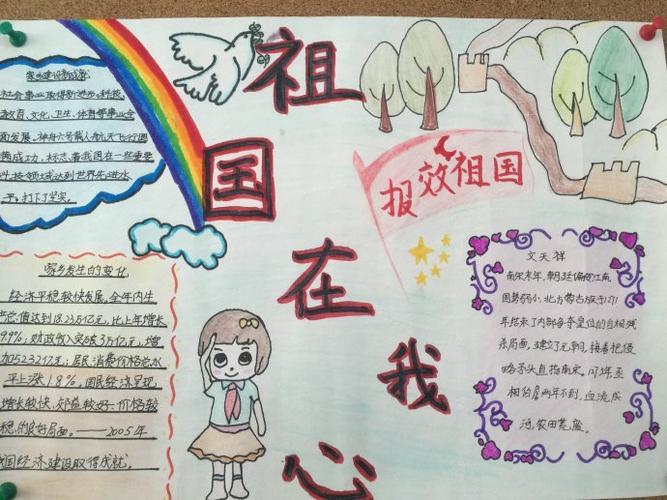 祖
国
在
我
心
报效祖国
社会事业取得新进步,科技、
教育、文化、卫生、体育等事业全
面发展,神舟六号载人航天飞行圆
满成功,标志着我国在一些重要
科技领域达到世界先进水
家乡发生的变化
经济平稳较快发展,全年内生
总值达到18.23万亿元,比上年增长
9.9%;财政收入突破3万亿元,增
加5232亿元;居民消费价格总水
平上涨1.8%,国民经济呈现
增长较快、效益较好、价格较
稳的良好局面。——2005年
国经济建设取得成就。
文天祥
南宋末年,朝廷偏安江南,
国势弱小,北方蒙古族于1271
年结束了内部争夺皇位的自相残
杀局面,建立了元朝,接着把侵
略矛头直指南宋。
相伯颜两年不到,血流成
河,农田荒芜。